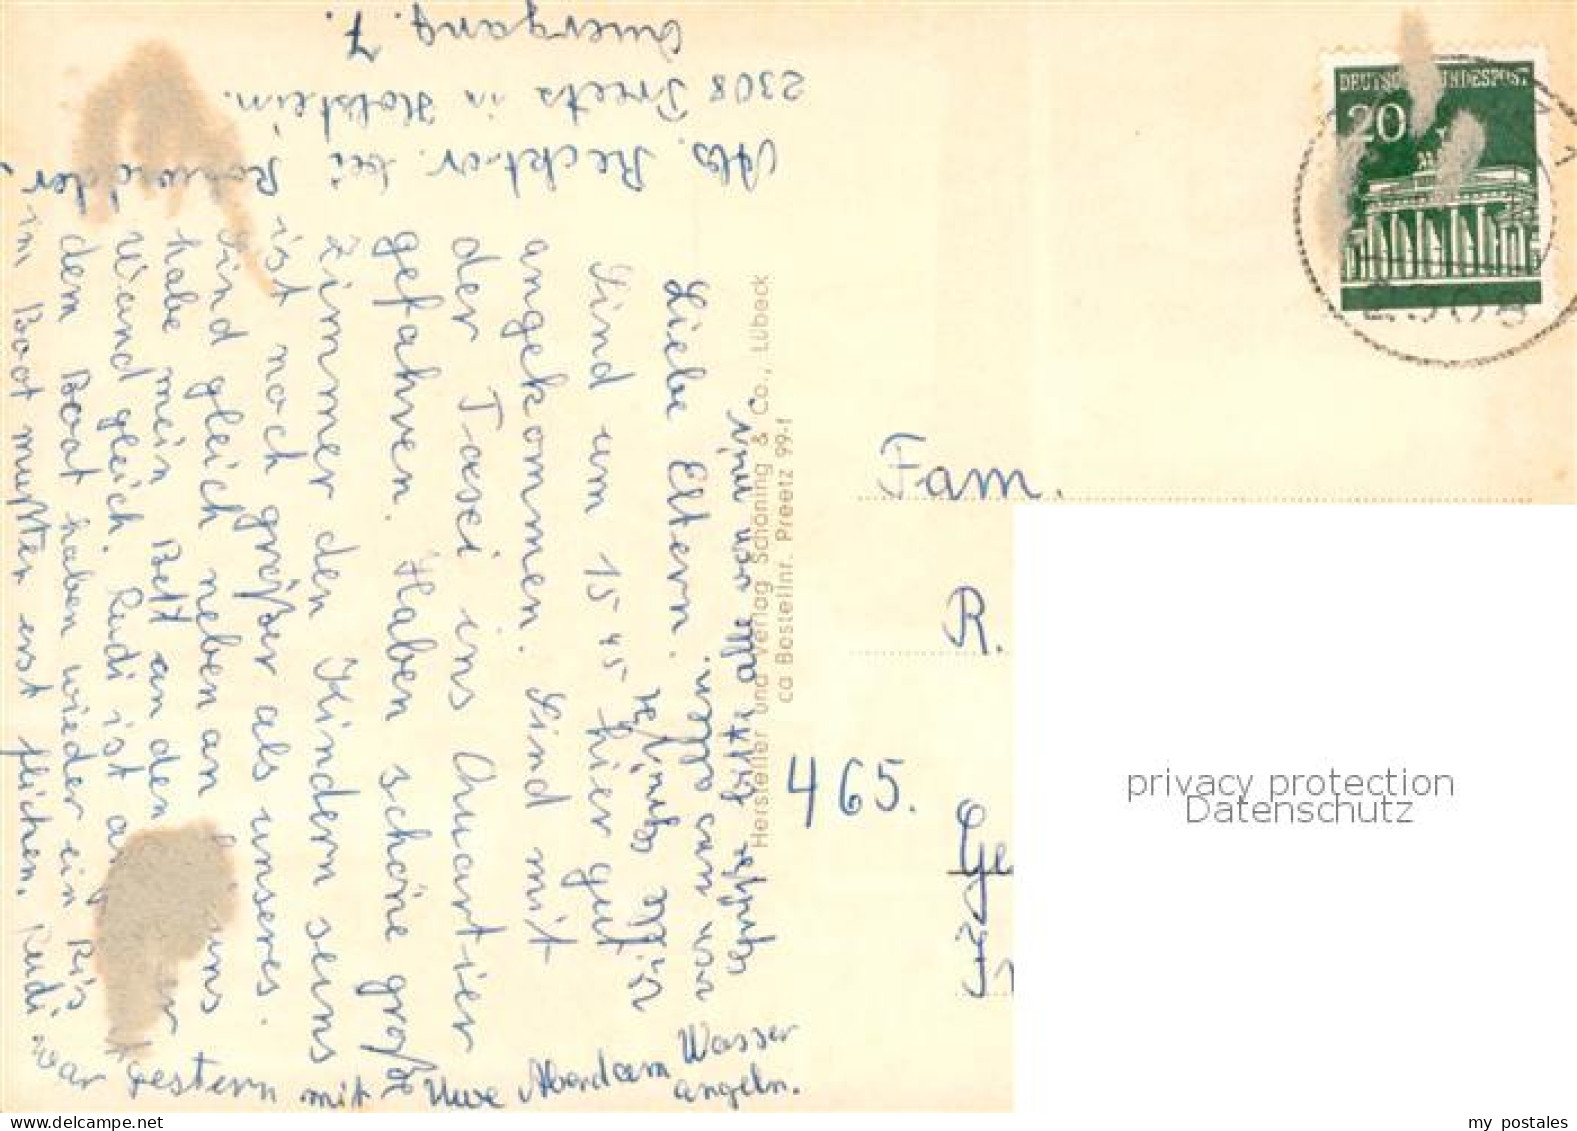 Abs. Recktor. bei
2308 Preetz in Holstein.
Quergang. 7.
Liebe Eltern.
Sind um 15⁴⁵ hier gut
angekommen. Sind mit
der Taxi ins Quartier
gefahren. Haben schöne große
Zimmer den Kindern seins
ist noch größer als unseres.
Sind gleich neben an
habe mein Bett an der
Wand gleich. Rudi ist
dem Boot haben wieder ein Ris
im Boot mußten erst flichen. Rudi
war gestern mit Uwe Abend am Wasser
angeln.
grüße bitte alle von mir.
Hersteller und Verlag Schöning & Co., Lübeck
ca Bestellnr. Preetz 99-f
DEUTSCHE BUNDESPOST
20
2308
Fam.
R.
465.
Ge
privacy protection
Datenschutz
my postales